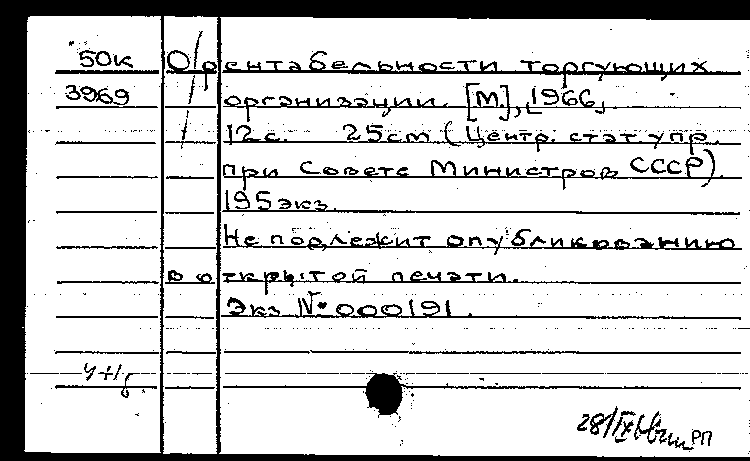 50к О рентабельности торгующих
3969 организации. [М.], 1966.
12с. 25см (Центр. стат. упр.
при Совете Министров СССР).
195экз.
Не подлежит опубликованию
в открытой печати.
Экз №000191.
28/IX РП